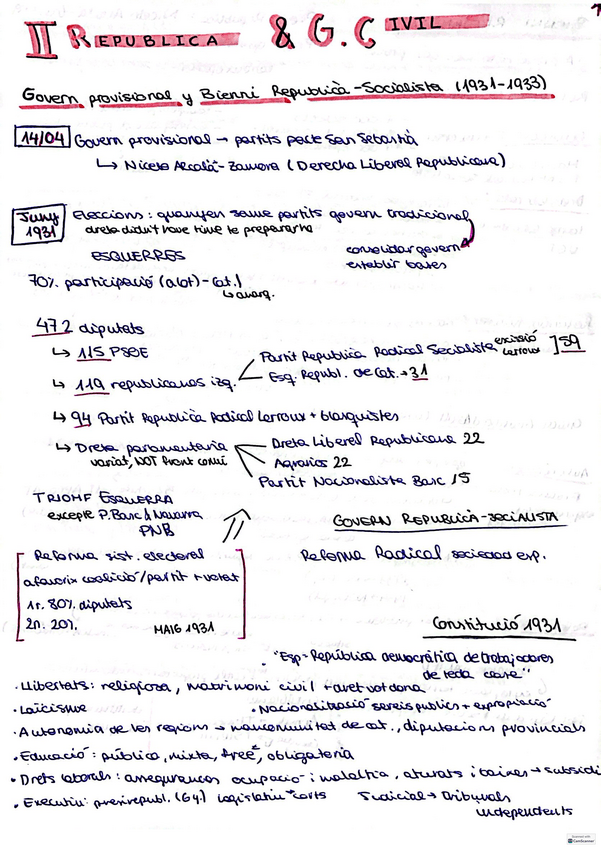 II REPUBLICA & G. CIVIL
Govern provisional y Bienni Republicà-Socialista (1931-1933)
14/04 Govern provisional → partits pacte San Sebastià
↳ Niceto Alcalá-Zamora (Derecha Liberal Republicana)
Juny 1931 Eleccions: guanyen same partits govern tradicional
dreta didn't have time to prepararna
consolidar govern
establir bases
ESQUERRES
70% participació (alot) - cat.)
↳ anarq.
472 diputats
↳ 115 PSOE
↳ 119 republicanos izq.
Partit Republicà Radical Socialista escissió Lerroux ] 59
Esq. Republ. de Cat. → 31
↳ 94 Partit Republicà Radical Lerroux + blasquistes
↳ Dreta paramentaria
variat, NOT front comú
Dreta Liberal Republicana 22
Agrarios 22
Partit Nacionalista Basc 15
TRIOMF ESQUERRA
excepte P. Basc & Navarra
PNB
GOVERN REPUBLICÀ-SOCIALISTA
Reforma Radical sociedad esp.
Reforma sist. electoral
afavorix coalició/partit + votat
1r. 80% diputats
2n. 20%
MAIG 1931
Constitució 1931
• "Esp = República democrática de trabajadores
de toda clase"
• Llibertats: religiosa, matrimoni civil + dret vot dona
• Laïcisme
• Nacionalització serveis publics + expropiació
• Autonomia de les regions → mancomunitat de cat., diputacions provincials
• Educació: pública, mixta, free, obligatoria
• Drets laborals: assegurances ocupació i malaltia, aturats i baixes → subsidi
• Executiu: presi republ. (6y.) Legislatiu → corts Judicial → Tribunals
independents
CamScanner